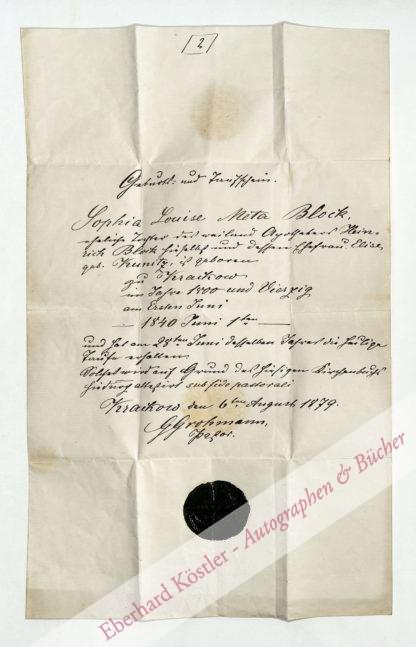 [2]
Geburts- und Taufschein.
Sophia Louise Meta Block,
eheliche Tochter des weiland Apothekers Hein-
rich Block hieselbst und dessen Ehefrau Elise,
geb. Kunitz, ist geboren
zu Krackow
im Jahre 1800 und Vierzig
am Ersten Juni
— 1840 Juni 1ten —
und hat am 28ten Juni desselben Jahres die heilige
Taufe erhalten.
Solches wird auf Grund des hiesigen Kirchenbuchs
hiedurch attestirt sub fide pastorali
Krackow den 6ten August 1879.
G Großmann,
Pastor.
Eberhard Köstler - Autographen & Bücher